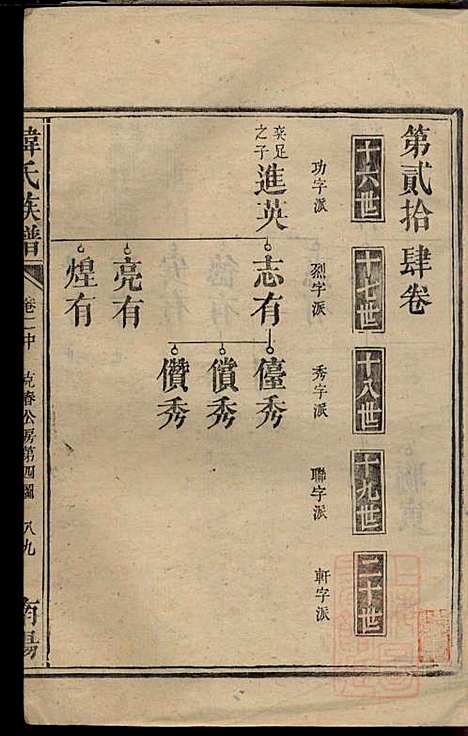 第貳拾肆卷
十六世
十七世
十八世
十九世
二十世
功字派
烈字派
秀字派
聯字派
軒字派
奕足之子
進英
志有
亮有
煌有
儓秀
償秀
儹秀
韓氏族譜
卷二中
克春公房第四圖
八九
南陽